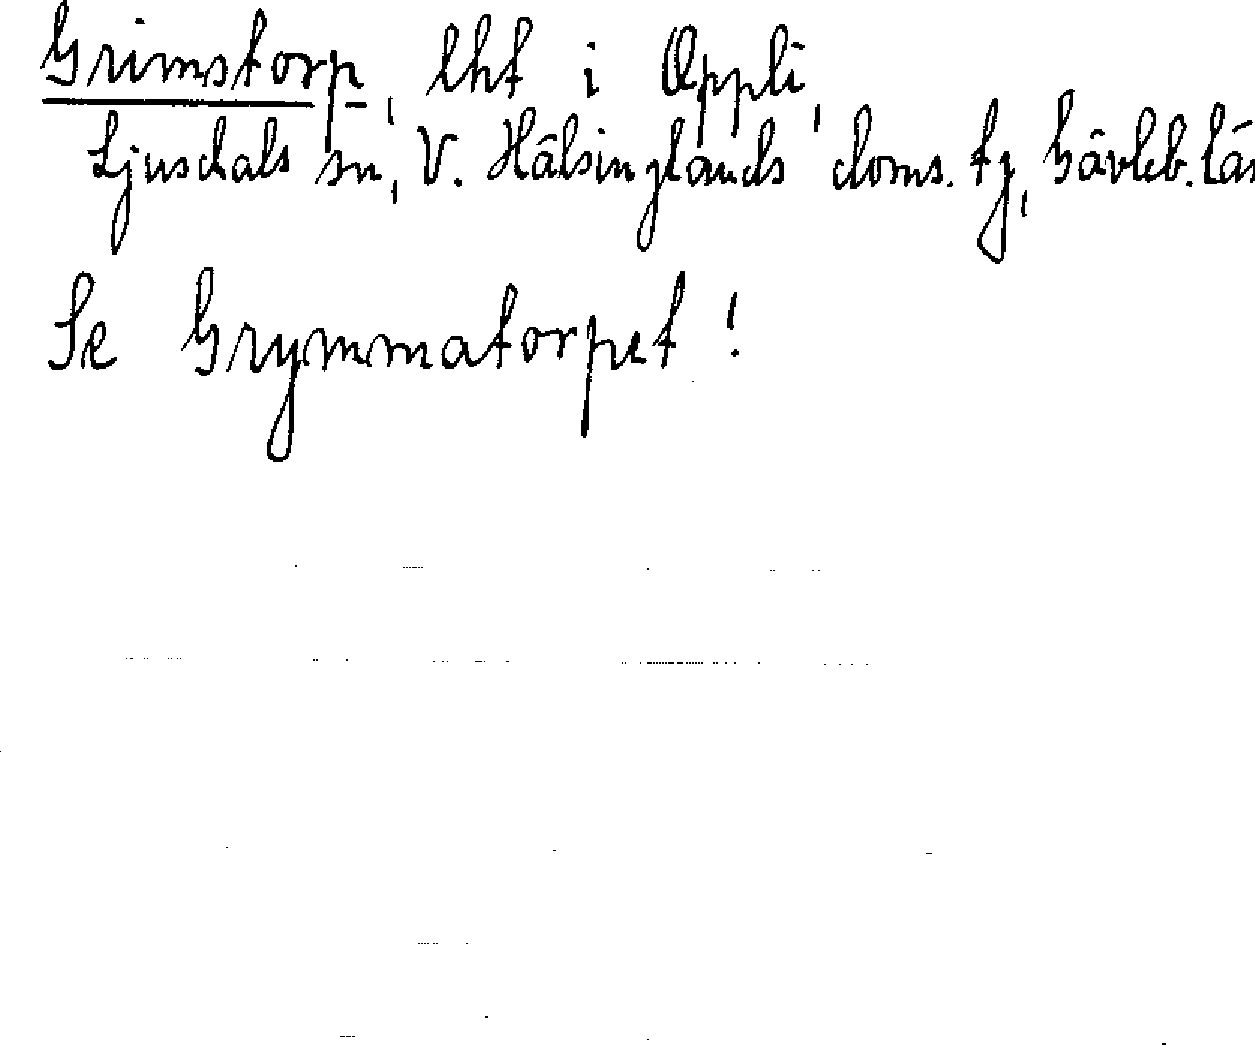 Grimstorp, lht i Öppli,
Ljusdals sn, V. Hälsinglands doms. tg, Gävleb. län
Se Grymmatorpet!